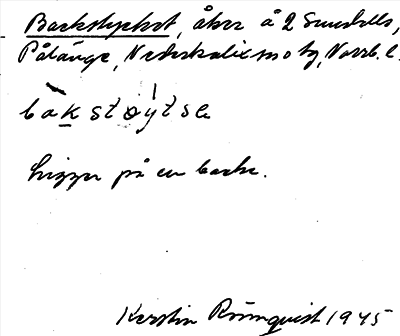 Backstycket, åker å 2 Sundells,
Pålänge, Nederkalix sn o tg, Norrb. l.
bakstøytse
Ligger på en backe.
Kerstin Rönnquist 1945